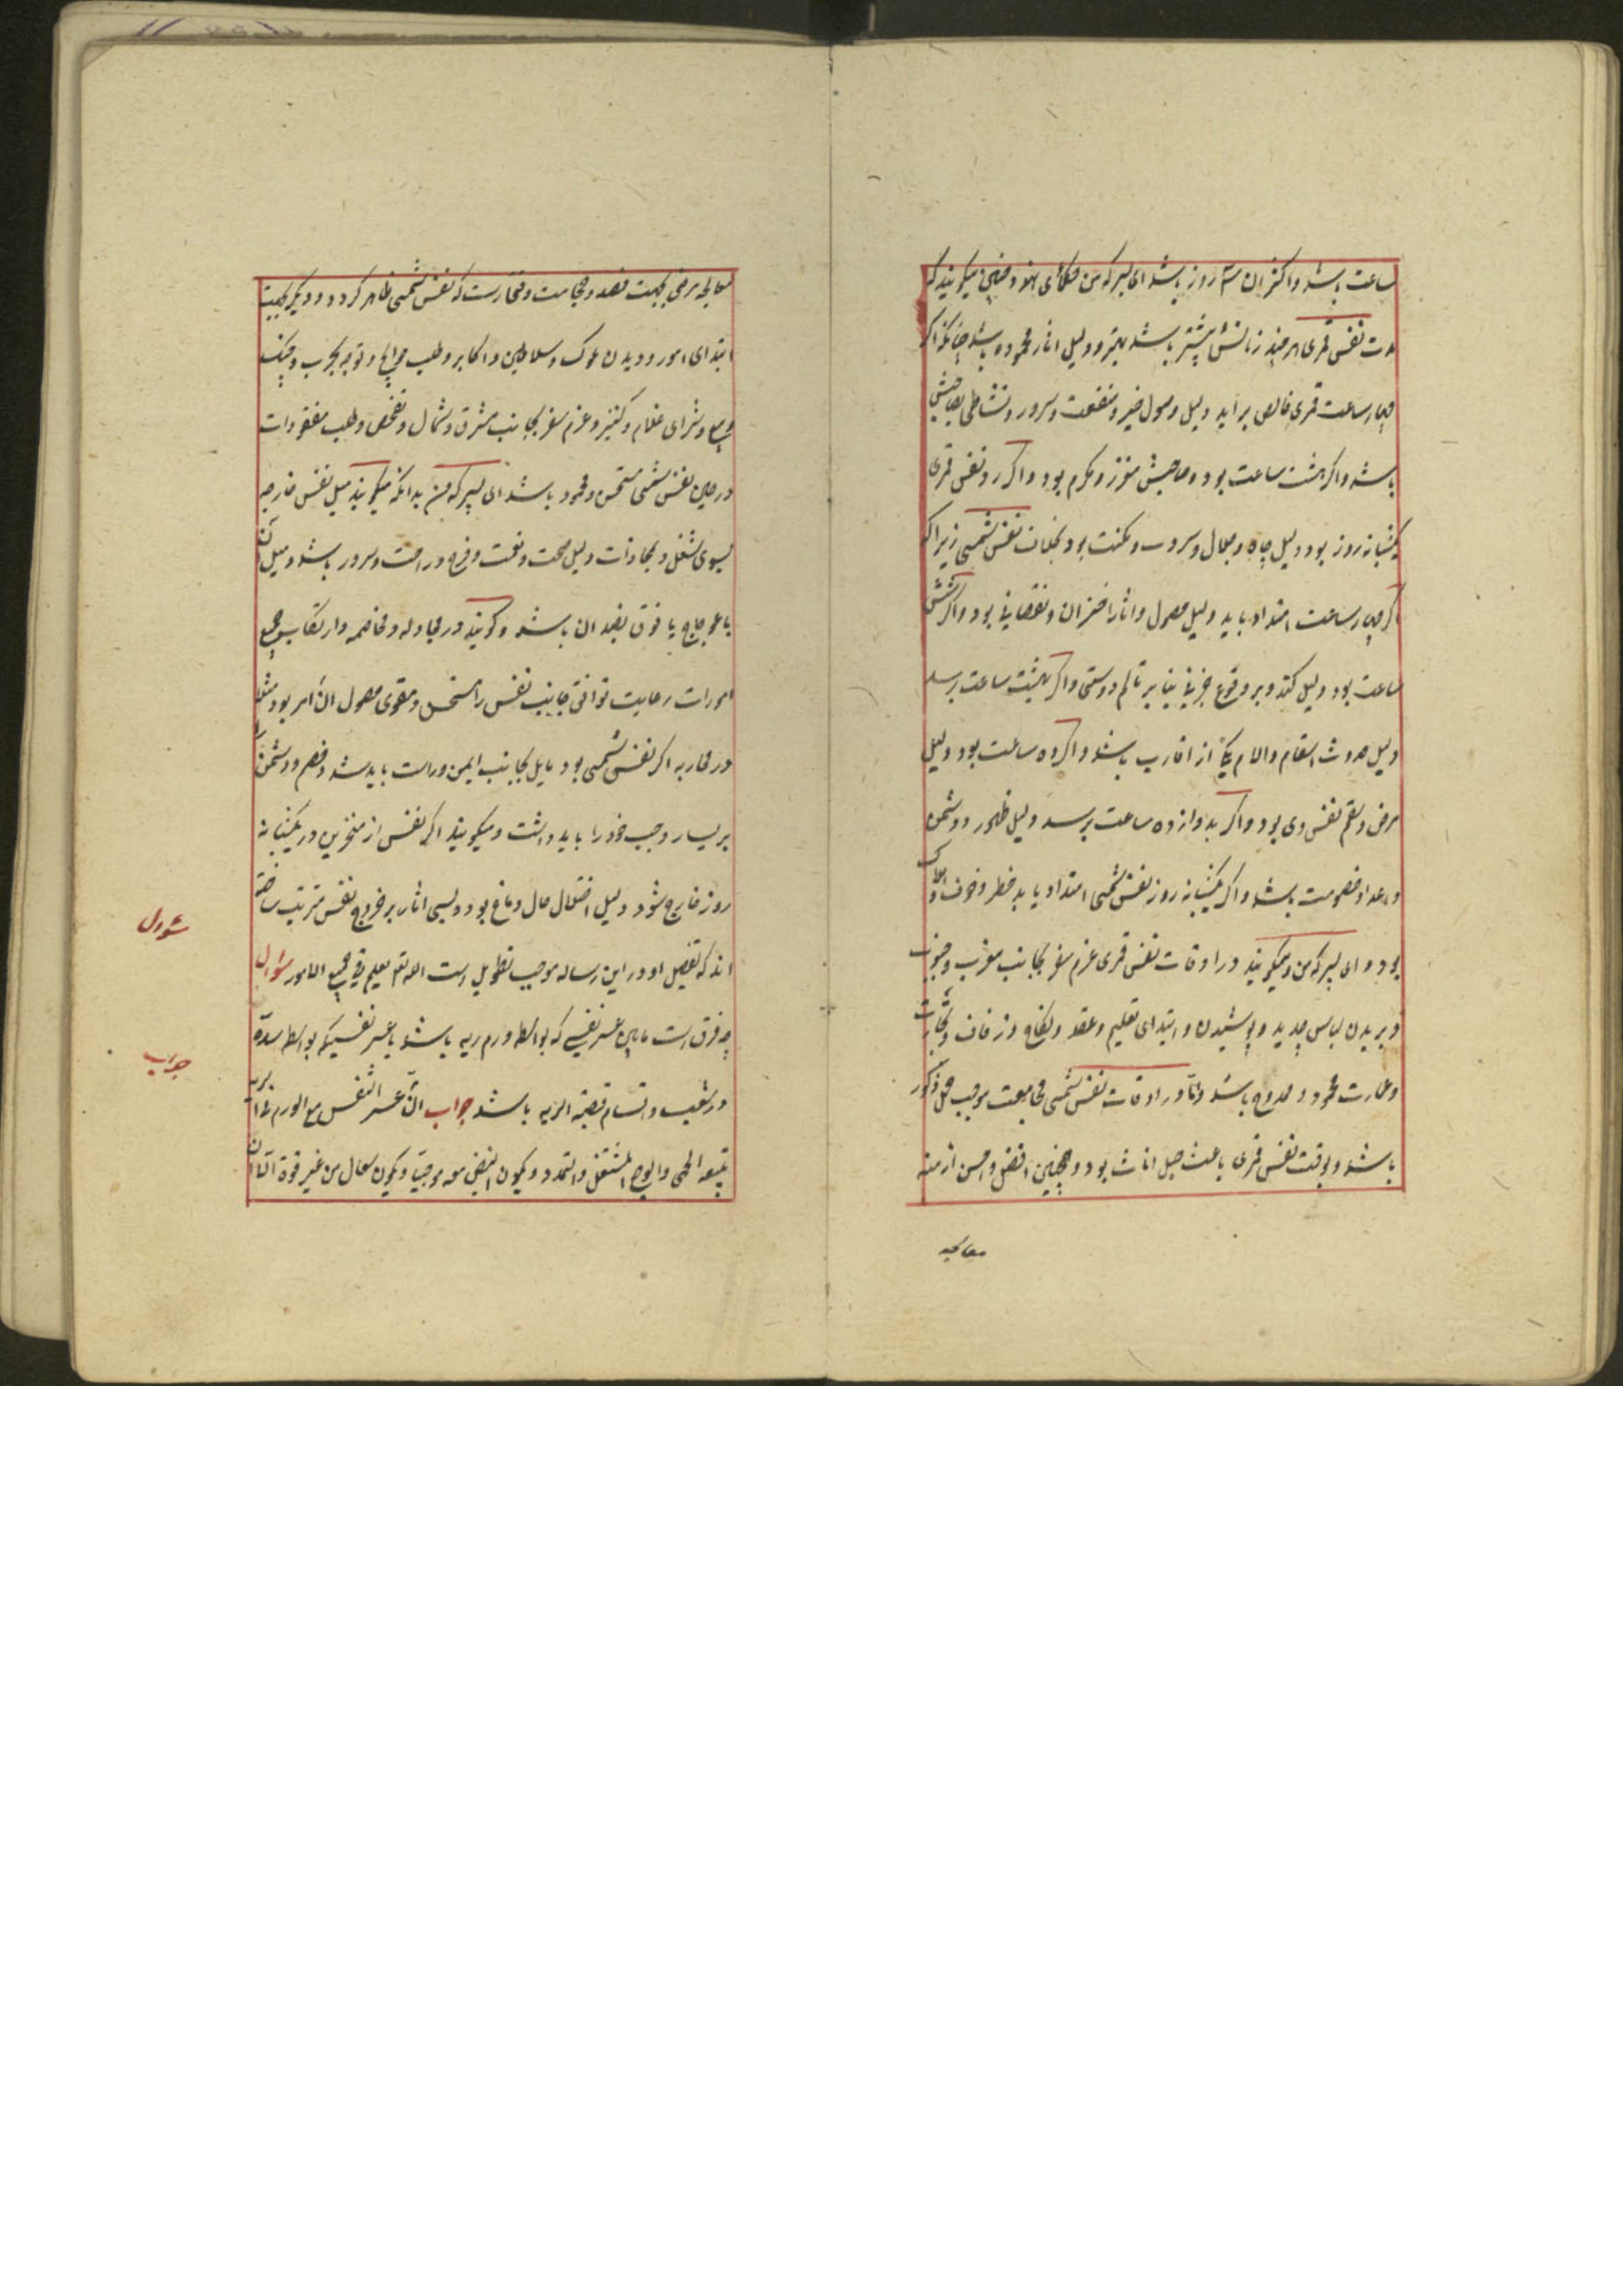 ساعت باشد و اکثر ان سه روز باشد ای پسرک من حکمای هند و چنین میکویند که
مدت نفس قمری هر چند زمانش بیشتر باشد بهتر و دلیل اثار محموده باشد چنانکه اکر
چهار ساعت قمری خالص برآید دلیل وصول خیر و منفعت و سرور و نشاطی بصاحبش
باشد و اکر هشت ساعت بود و صاحبش معزز و مکرم بود و اکر دو نفس قمری
یکشبانه روز بود دلیل جاه و جلال و سرور و مکنت بود بخلاف نفس شمسی زیرا که
اکر چهار ساعت امتداد یابد دلیل حصول و اثار احزان و نقصانی بود و اکر شش
ساعت بود دلیل کند و بر وقوع جزئی بنابر تالم دوستی و اکر بهشت ساعت برسد
دلیل حدوث اسقام و الام یکی از اقارب باشد و اکر ده ساعت بود دلیل
مرض و سقم نفس وی بود و اکر بدوازده ساعت برسد دلیل ظهور دشمن
و اعدا و خصومت باشد و اکر یکشبانه روز نفس شمسی امتداد یابد خطر و خوف هلاک
بود و ای پسرک من میکویند در اوقات نفس قمری عزم سفر بجانب مغرب و جنوب
و بریدن لباس جدید و پوشیدن و ابتدای تعلیم و عقد و نکاح و زفاف و تجارت
و عمارت محمود و ممدوح باشد و اما در اوقات نفس شمسی مجامعت موجب حمل ذکور
باشد و بوقت نفس قمری باعث حبل اناث بود و همچنین افضل و احسن ازمنه
معالجه
معالجه مرضی بجهت فصد و حجامت وقتیست که نفس شمسی ظاهر کردد و دیکر بجهت
ابتدای امور و دیدن ملوک و سلاطین و اکابر و طلب حوایج و توجه بحرب و جنک
و بیع و شرای غلام و کنیز و عزم سفر بجانب مشرق و شمال و تفحص و طلب مفقودات
در حین نفس شمسی مستحسن و محمود باشد ای پسرک من بدانکه میکویند میل نفس خارجه
بسوی سفل و محاذات دلیل صحت و نعمت و فرح و راحت و سرور باشد و میل آن
باعوجاج یا فوق بضد ان باشد و کویند در مجادله و مخاصمه و ارتکاب جمیع
امورات رعایت توافق جانب نفس را مستحسن و مقوی حصول ان امر بود مثلا
در محاربه اکر نفس شمسی بود مایل بجانب ایمن و راست باید شد و خصم و دشمن را
بر یسار و جنب خود را باید داشت و میکویند اکر نفس از منخرین در یکشبانه
روز خارج شود دلیل اختلال حال دماغ بود و بسی اثار بر خروج نفس مترتب ساخته
اند که تفصیل او در این رساله موجب تطویل است الله تع یعلم فی جمیع الامور سؤال
چه فرق است مابین عسر نفسی که بواسطه ورم ریه باشد با عسر نفسیکه بواسطه سده
در شعب و اقسام قصبة الریه باشد جواب ان عسر النفس مع الورم
یتبعه الحمی والوجع المثقل والتمدد و یکون النبض معه موجیا و یکون سعال من غیر قوة
سؤال
جواب